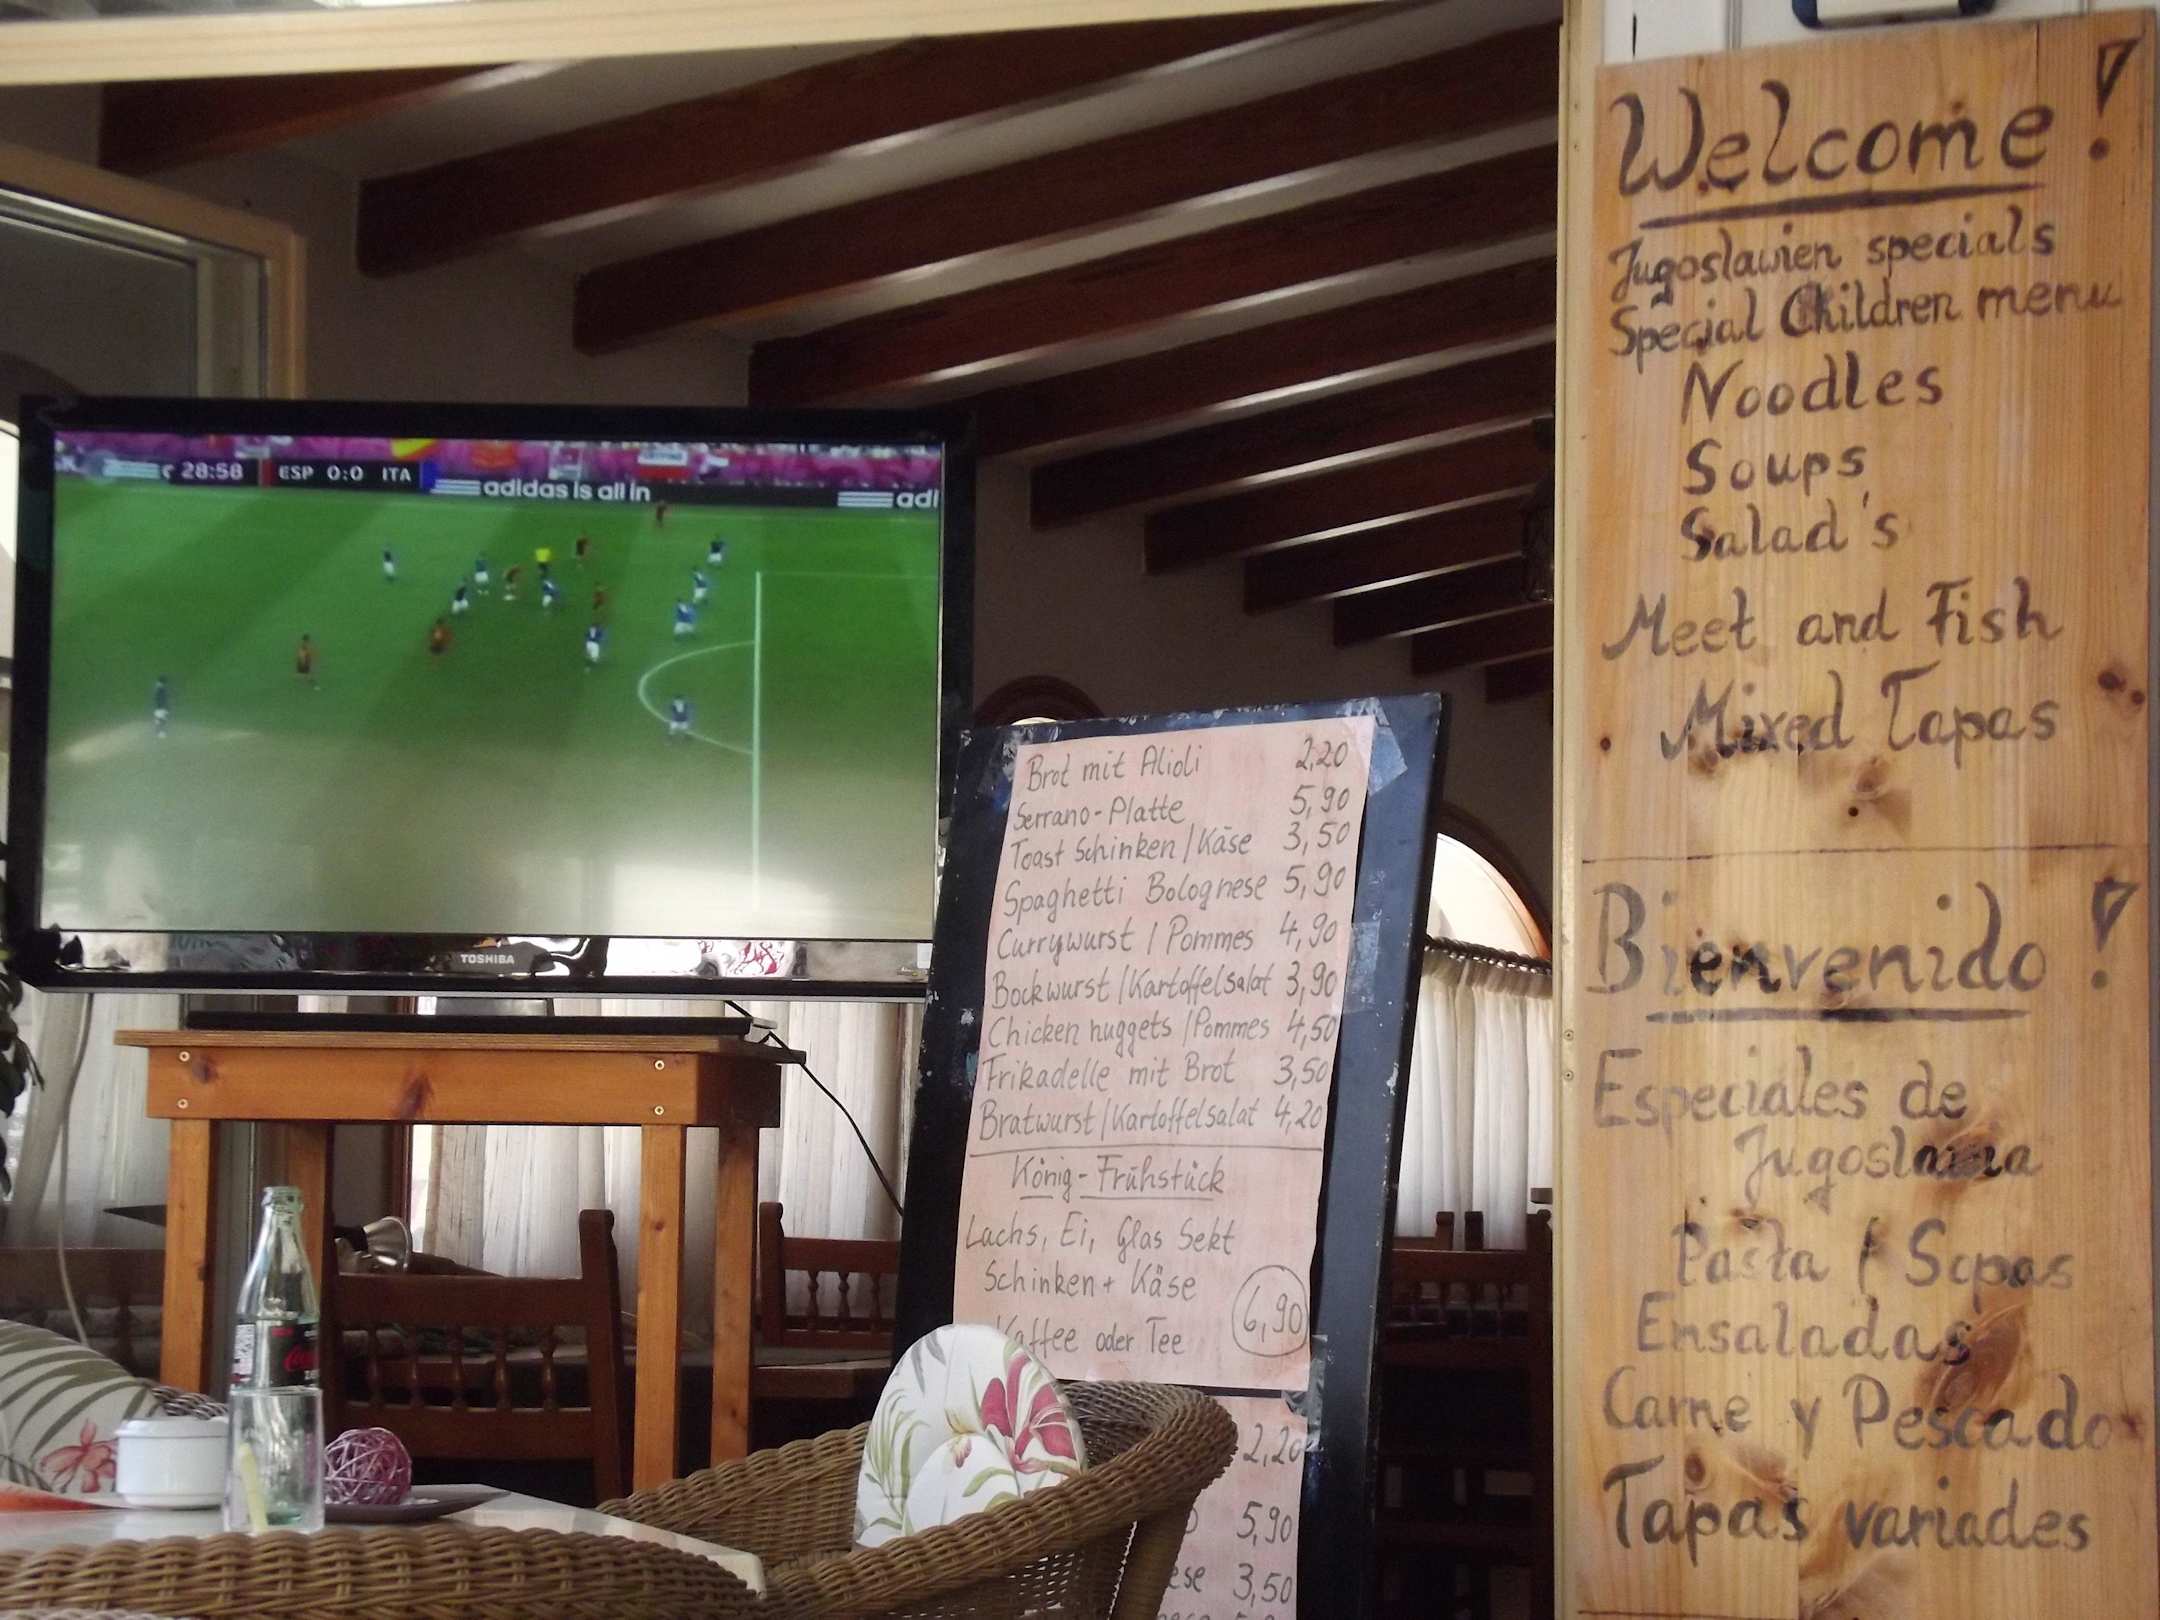 28:58 ESP 0:0 ITA
adidas is all in
adi
TOSHIBA
Brot mit Alioli 2,20
Serrano-Platte 5,90
Toast Schinken/Käse 3,50
Spaghetti Bolognese 5,90
Currywurst / Pommes 4,90
Bockwurst/Kartoffelsalat 3,90
Chicken nuggets/Pommes 4,50
Frikadelle mit Brot 3,50
Bratwurst/Kartoffelsalat 4,20
König-Frühstück
Lachs, Ei, Glas Sekt
Schinken+ Käse
Kaffee oder Tee
6,90
2,20
5,90
3,50
Welcome!
Jugoslawien specials
Special Children menu
Noodles
Soups
Salad's
Meet and Fish
Mixed Tapas
Bienvenido!
Especiales de
Jugoslawia
Pasta / Sopas
Ensaladas
Carne y Pescado
Tapas variades